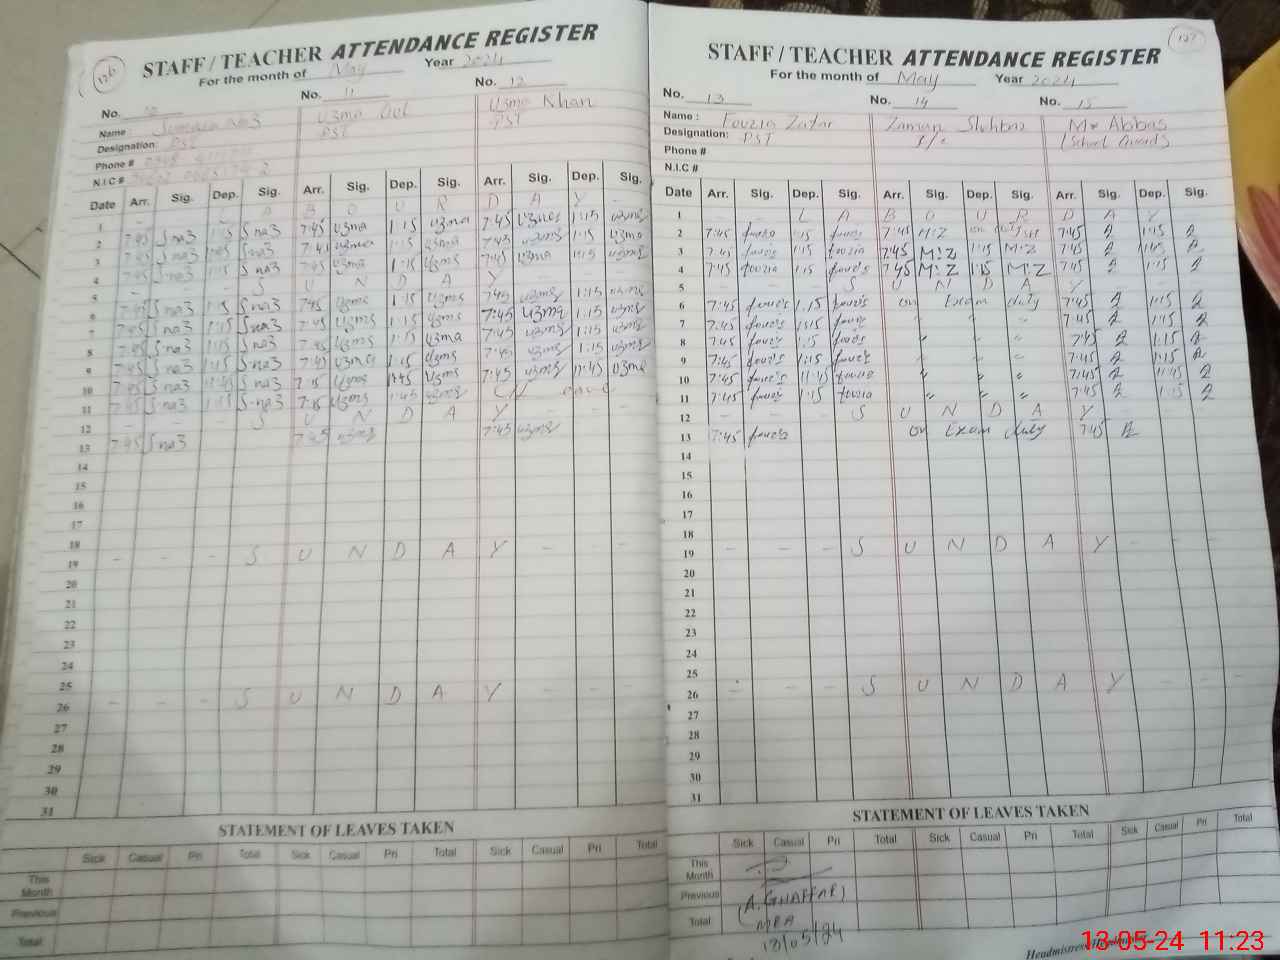 126
STAFF / TEACHER ATTENDANCE REGISTER
For the month of May Year 2024
No. 10 No. 11 No. 12
Name : Uzma Gul Uzma Khan
Designation: PST PST PST
Phone #
N.I.C #
Date Arr. Sig. Dep. Sig. Arr. Sig. Dep. Sig. Arr. Sig. Dep. Sig.
1 - - A B O U R D A Y -
2 7:45 Sna3 1:15 Sna3 7:45 u3ma 1:15 u3ma 7:45 u3ma 1:15 u3ma
3 7:45 Sna3 1:15 Sna3 7:45 u3ma 1:15 u3ma 7:45 u3ma 1:15 u3ma
4 7:45 Sna3 1:15 Sna3 7:45 u3ma 1:15 u3ms 7:45 u3ma 1:15 u3ms
5 - - - S U N D A Y - - -
6 7:45 Sna3 1:15 Sna3 7:45 u3ms 1:15 u3ms 7:45 u3ms 1:15 u3ms
7 7:45 Sna3 1:15 Sna3 7:45 u3ms 1:15 u3ms 7:45 u3ma 1:15 u3ms
8 7:45 Sna3 1:15 Sna3 7:45 u3ms 1:15 u3ma 7:45 u3ms 1:15 u3ms
9 7:45 Sna3 1:15 Sna3 7:45 u3ma 1:15 u3ms 7:45 u3ms 1:15 u3ms
10 7:45 Sna3 11:45 Sna3 7:15 u3ms 11:45 u3ms 7:45 u3ms 11:45 u3ma
11 7:45 Sna3 1:15 Sna3 7:15 u3ms 1:45 u3ms
12 - - - S U N D A Y - - -
13 7:45 Sna3 7:45 u3ms 7:45 u3ms
14
15
16
17
18
19 - - - S U N D A Y - - -
20
21
22
23
24
25
26 - - - S U N D A Y - - -
27
28
29
30
31
STATEMENT OF LEAVES TAKEN
Sick Casual Pri Total Sick Casual Pri Total Sick Casual Pri Total
This Month
Previous
Total
127
STAFF / TEACHER ATTENDANCE REGISTER
For the month of May Year 2024
No. 13 No. 14 No. 15
Name : Fouzia Zafar Zaman Shehbaz Mr Abbas
Designation: PST I/c (School Guard)
Phone #
N.I.C #
Date Arr. Sig. Dep. Sig. Arr. Sig. Dep. Sig. Arr. Sig. Dep. Sig.
1 - - L A B O U R D A Y -
2 7:45 1:15 7:45 M:Z on duty 7:45 A 1:15 A
3 7:45 1:15 fouzia 7:45 M:Z 1:15 M:Z 7:45 A 1:15 A
4 7:45 fouzia 1:15 7:45 M:Z 1:15 M:Z 7:45 A 1:15 A
5 - - - S U N D A Y - - -
6 7:45 1:15 on Exam duty 7:45 A 1:15 A
7 7:45 1:15 " " " 7:45 A 1:15 A
8 7:45 1:15 " " " 7:45 A 1:15 A
9 7:45 1:15 " " " 7:45 A 1:15 A
10 7:45 11:45 " " " 7:45 A 11:45 A
11 7:45 1:15 fouzia " " " 7:45 A 1:15 A
12 - - - S U N D A Y - - -
13 7:45 on Exam duty 7:45 A
14
15
16
17
18
19 - - - S U N D A Y - - -
20
21
22
23
24
25
26 - - - S U N D A Y - - -
27
28
29
30
31
STATEMENT OF LEAVES TAKEN
Sick Casual Pri Total Sick Casual Pri Total Sick Casual Pri Total
This Month
Previous
Total
(A. GHAFFAR)
MEA
13/05/24
Headmistress/Headmaster
13-05-24 11:23